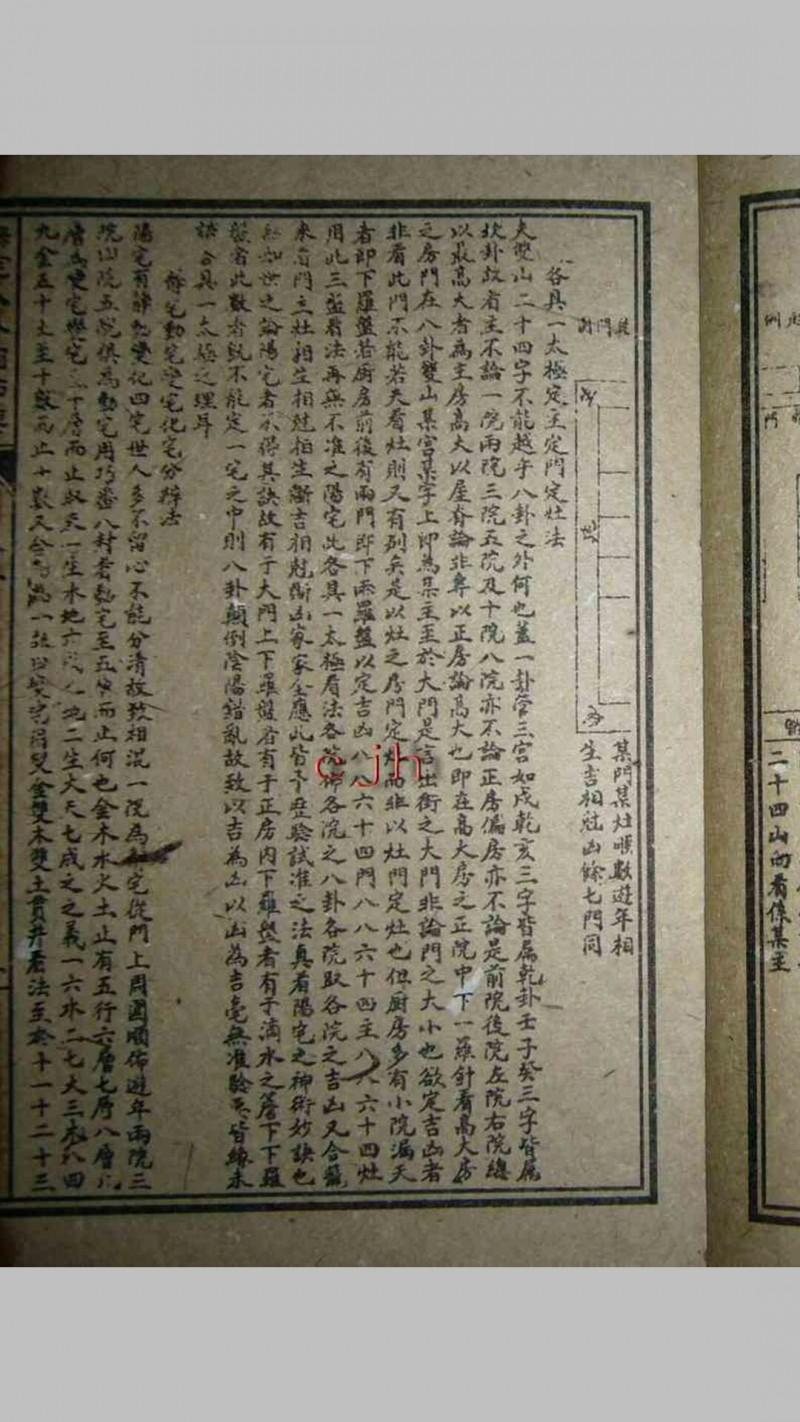 二十四山向看像某主
某門某灶順數遊年相
生吉相尅凶餘七門同
各具一太極定主定門定灶法
夫雙山二十四字不能越乎八卦之外何也蓋一卦管三宮如戌乾亥三字皆属乾卦壬子癸三字皆属
坎卦故省主不論一院兩院三院五院及十院八院亦不論正房偏房亦不論是前院後院左院右院總
以最高大者為主房高大以屋脊論非專以正房論高大也即在高大房之正院中下一羅針看高大房
之房門在八卦雙山某宮某字上即為某主至於大門是言出街之大門非論門之大小也欲定吉凶者
非看此門不能若夫看灶則又有别矣是以灶之房門定灶而非以灶門定灶也但厨房多有小院漏天
者即下羅盤若厨房前後有兩門即下兩羅盤以定吉凶八八六十四門八八六十四主八八六十四灶
用此三盤看法再無不准之陽宅此各具一太極看法各院佈各院之八卦各院取各院之吉凶又合籠
來看門主灶相生相尅相生斷吉相尅斷凶家家全應此皆予歷驗試准之法真看陽宅之神術妙訣也
世之論陽宅者不得其訣故有于大門上下羅盤者有于正房内下羅盤者有于滴水之簷下下羅
盤者此數者既不能定一宅之中則八卦顛倒陰陽錯亂故致以吉為凶以凶為吉毫無准驗是皆緣未
各具一太極之理耳
靜宅動宅變宅化宅分辨法
陽宅有靜動變化四宅世人多不留心不能分清故致相混一院為宅從門上周圍順佈遊年兩院三
院四院五院俱為動宅用巧番八卦看動宅至五層而止何也金木水火土止有五行六層七層八層
層為變宅變宅十層而止取天一生水地六成之地二生火天七成之之義一六水二七火三八木四
九金五十土至十數而止十數又合一故曰變宅用雙金雙木雙土貫井看法至於十一十二十三
cjh